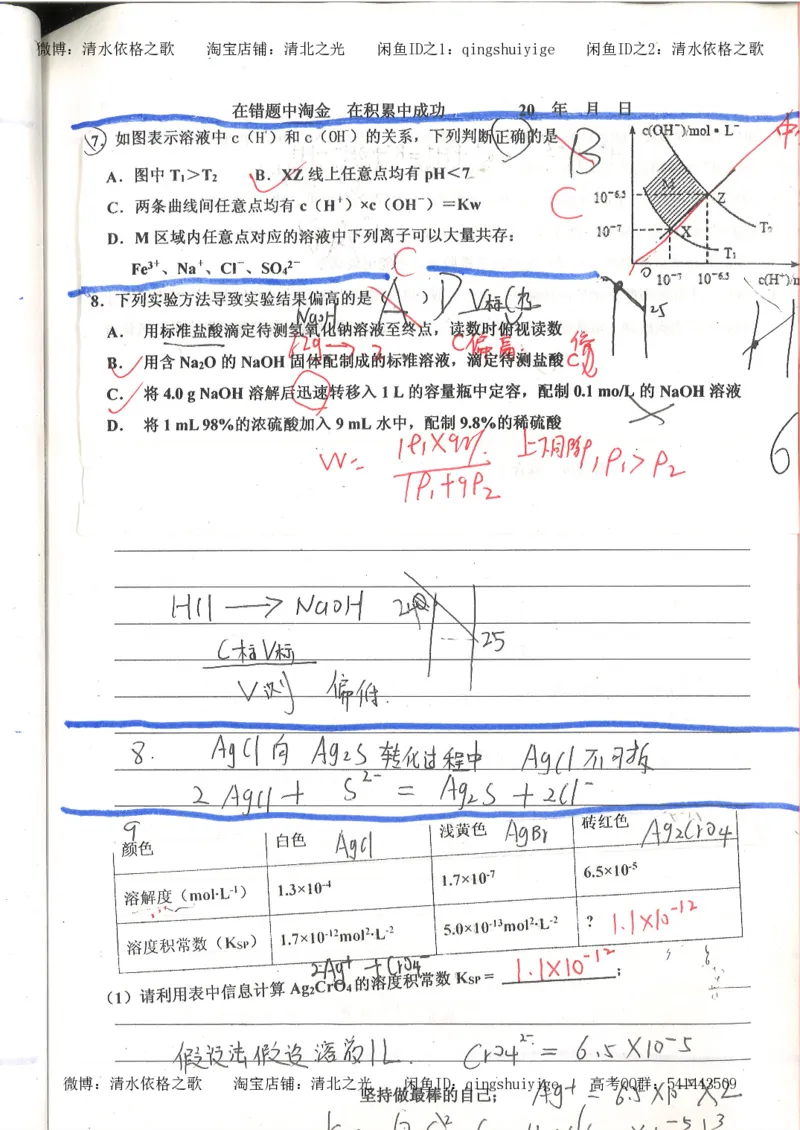 微博：清水依格之歌 淘宝店铺：清北之光 闲鱼ID之1：qingshuiyige 闲鱼ID之2：清水依格之歌
在错题中淘金 在积累中成功 20 年 月 日
7. 如图表示溶液中 c（H⁺）和 c（OH⁻）的关系，下列判断正确的是 B
A．图中 T₁＞T₂ B．XZ 线上任意点均有 pH＜7
C．两条曲线间任意点均有 c（H⁺）×c（OH⁻）＝Kw
C
D．M 区域内任意点对应的溶液中下列离子可以大量共存：
Fe³⁺、Na⁺、Cl⁻、SO₄²⁻
c(OH⁻)/mol·L⁻
中
M
10⁻⁶·⁵
Z
10⁻⁷
X
T₂
T₁
0
10⁻⁷ 10⁻⁶·⁵ c(H⁺)/m
C
8．下列实验方法导致实验结果偏高的是（ A ）D V标
NaOH
25
A． 用标准盐酸滴定待测氢氧化钠溶液至终点，读数时俯视读数
C偏高 偏
B． 用含 Na₂O 的 NaOH 固体配制成的标准溶液，滴定待测盐酸
C． 将 4.0 g NaOH 溶解后迅速转移入 1 L 的容量瓶中定容，配制 0.1 mo/L 的 NaOH 溶液
D． 将 1 mL 98%的浓硫酸加入 9 mL 水中，配制 9.8%的稀硫酸
6
W=
1ρ₁×98%
1ρ₁+9ρ₂
ρ₁ρ₁>ρ₂
HCl → NaOH
25
C标V标
V测 偏低.
8. AgCl向 Ag2S 转化过程中 AgCl不可拆
2 AgCl + S²⁻ = Ag2S + 2Cl⁻
9
颜色 白色 AgCl 浅黄色 AgBr 砖红色 Ag2CrO4
溶解度（mol·L⁻¹） 1.3×10⁻⁴ 1.7×10⁻⁷ 6.5×10⁻⁵
溶度积常数（KSP） 1.7×10⁻¹²mol²·L⁻² 5.0×10⁻¹³mol²·L⁻² ？ 1.1×10⁻¹²
2Ag⁺ + CrO4⁻
（1）请利用表中信息计算 Ag₂CrO₄的溶度积常数 KSP＝ 1.1×10⁻¹² ；
假设法假设溶液1L. CrO4²⁻ = 6.5×10⁻⁵
微博：清水依格之歌 淘宝店铺：清北之光 闲鱼ID之1：qingshuiyige 高考QQ群：541443509
坚持做最棒的自己；
Ag⁺ = 6.5×10⁻⁵×2